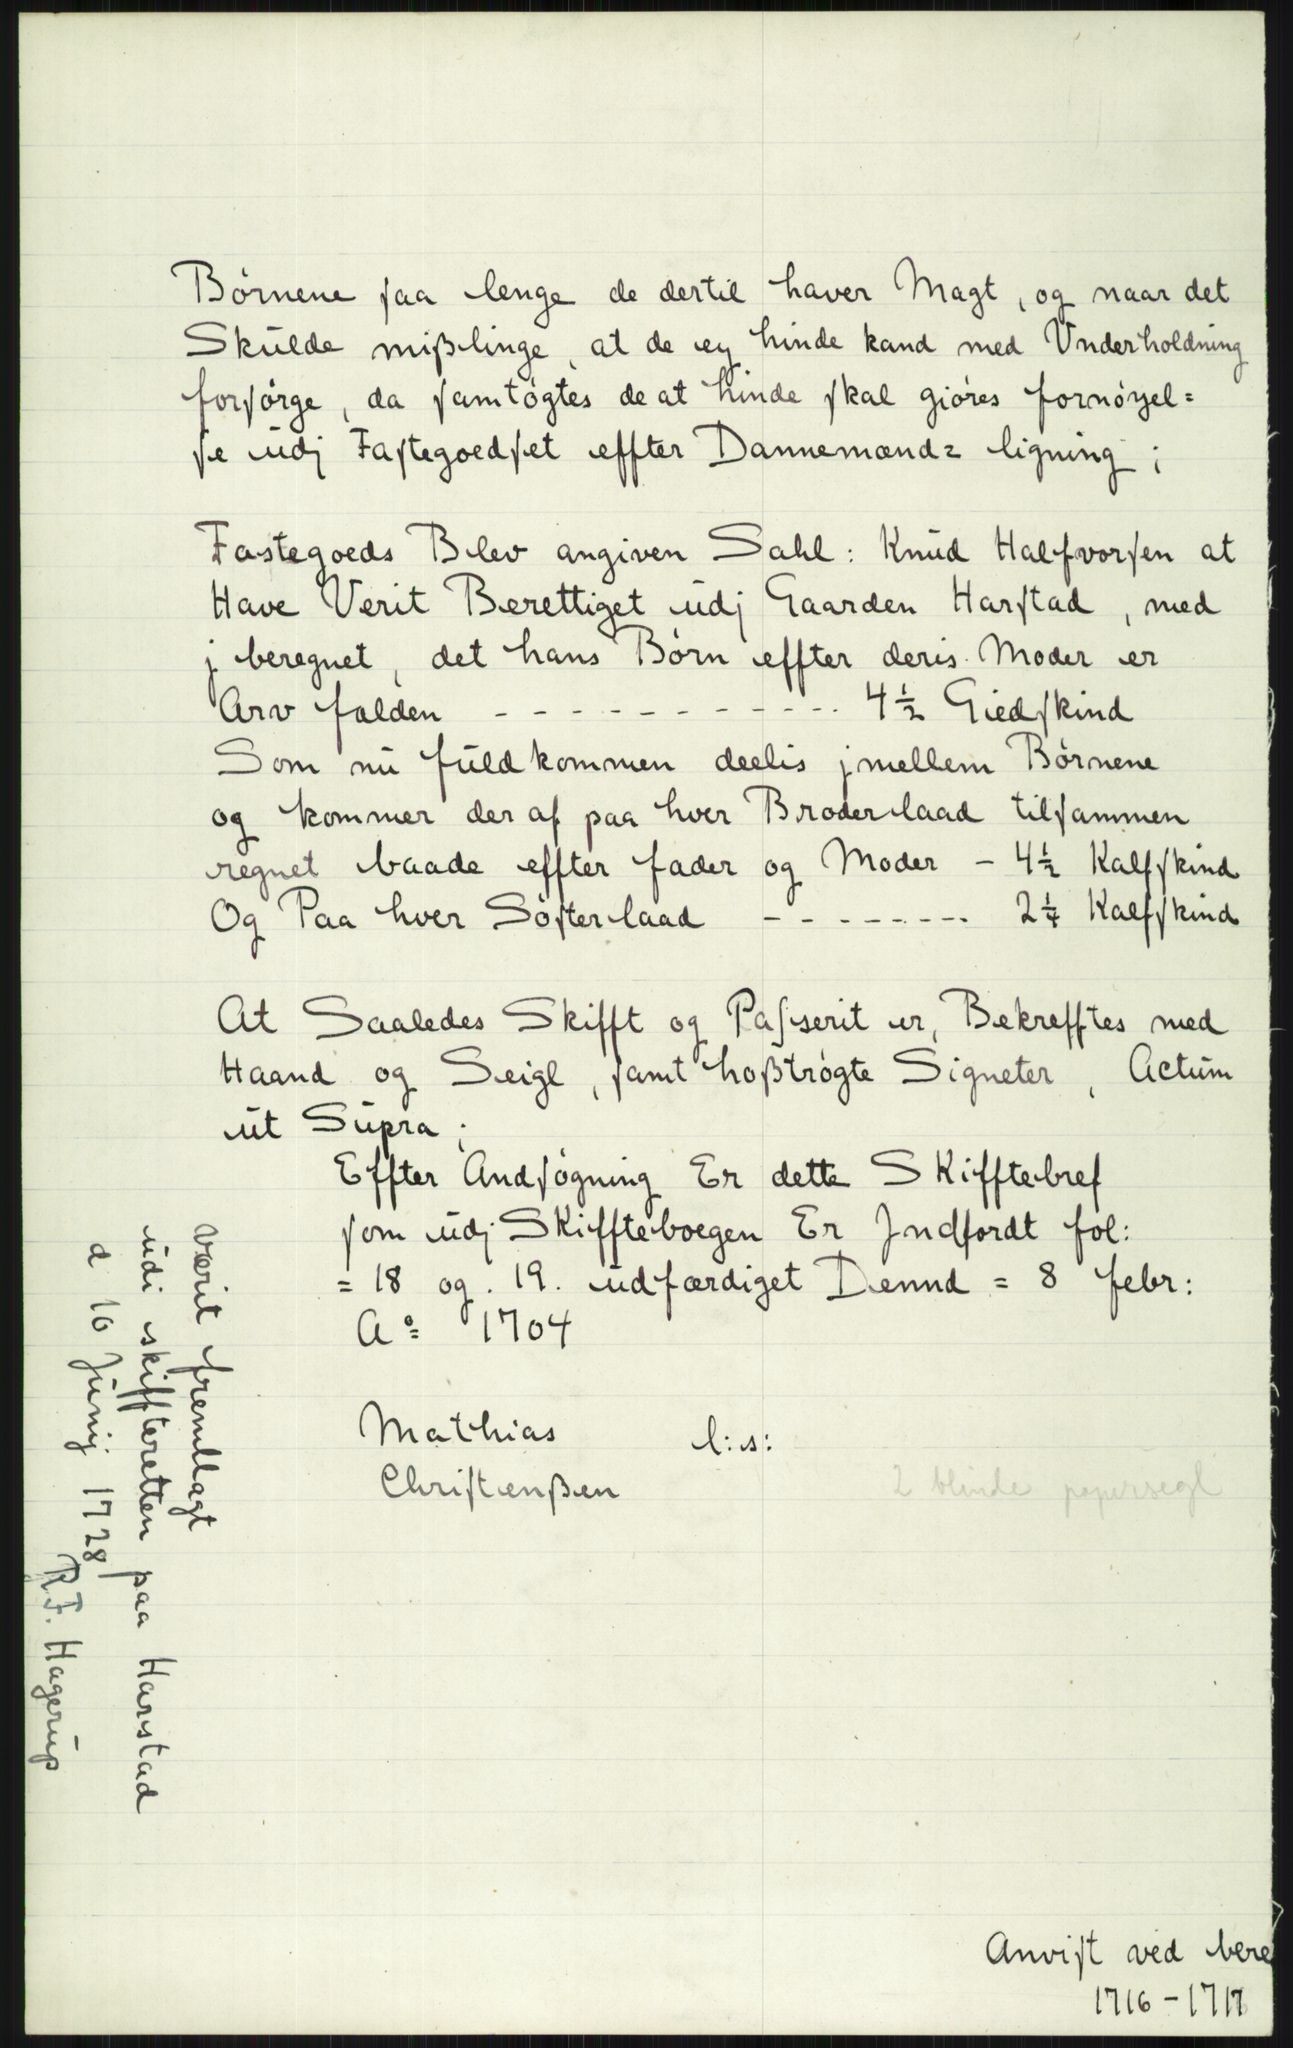 Børnene saa lenge de dertil haver Magt, og naar det
Skülde mißlinge, at de ey hinde kand med Vnderholdning
forsørge, da samtøgtes de at hinde skal giøres fornøyel=
se üdj Fastegoedset effter Dannemænd= ligning;
Fastegoeds Blev angiven Sahl: Knüd Halfvorsen at
Have Verit Berettiget üdj Gaarden Harstad, med
j beregnet, det hans Børn effter deris Moder er
Arv falden - - - - - - - - - - - - 4 1/2 Giedskind
Som nü füldkommen deelis jmellem Børnene
og kommer der af paa hver Broderlaad tilsammen
regnet baade effter fader og Moder - 4 1/2 Kalfskind
Og Paa hver Søsterlaad - - - - - - - - 2 1/4 Kalfskind
At Saaledes Skifft og Passerit er, Bekrefftes med
Haand og Seigl, samt hoßtrøgte Signeter, Actüm
üt Süpra;
Effter Andsøgning Er dette Skifftebref
som üdj Skiffteboegen Er Jndfordt fol:
= 18 og. 19. üdfærdiget Dennd = 8 febr:
Ao= 1704
Mathias l:s:
Christenßen
2 blinde papirsegl
Værit fremllagt
üdi skiffteretten paa Harstad
d 16 Jünij 1728
R.F. Hagerüp
Anvist ved bere
1716-1717